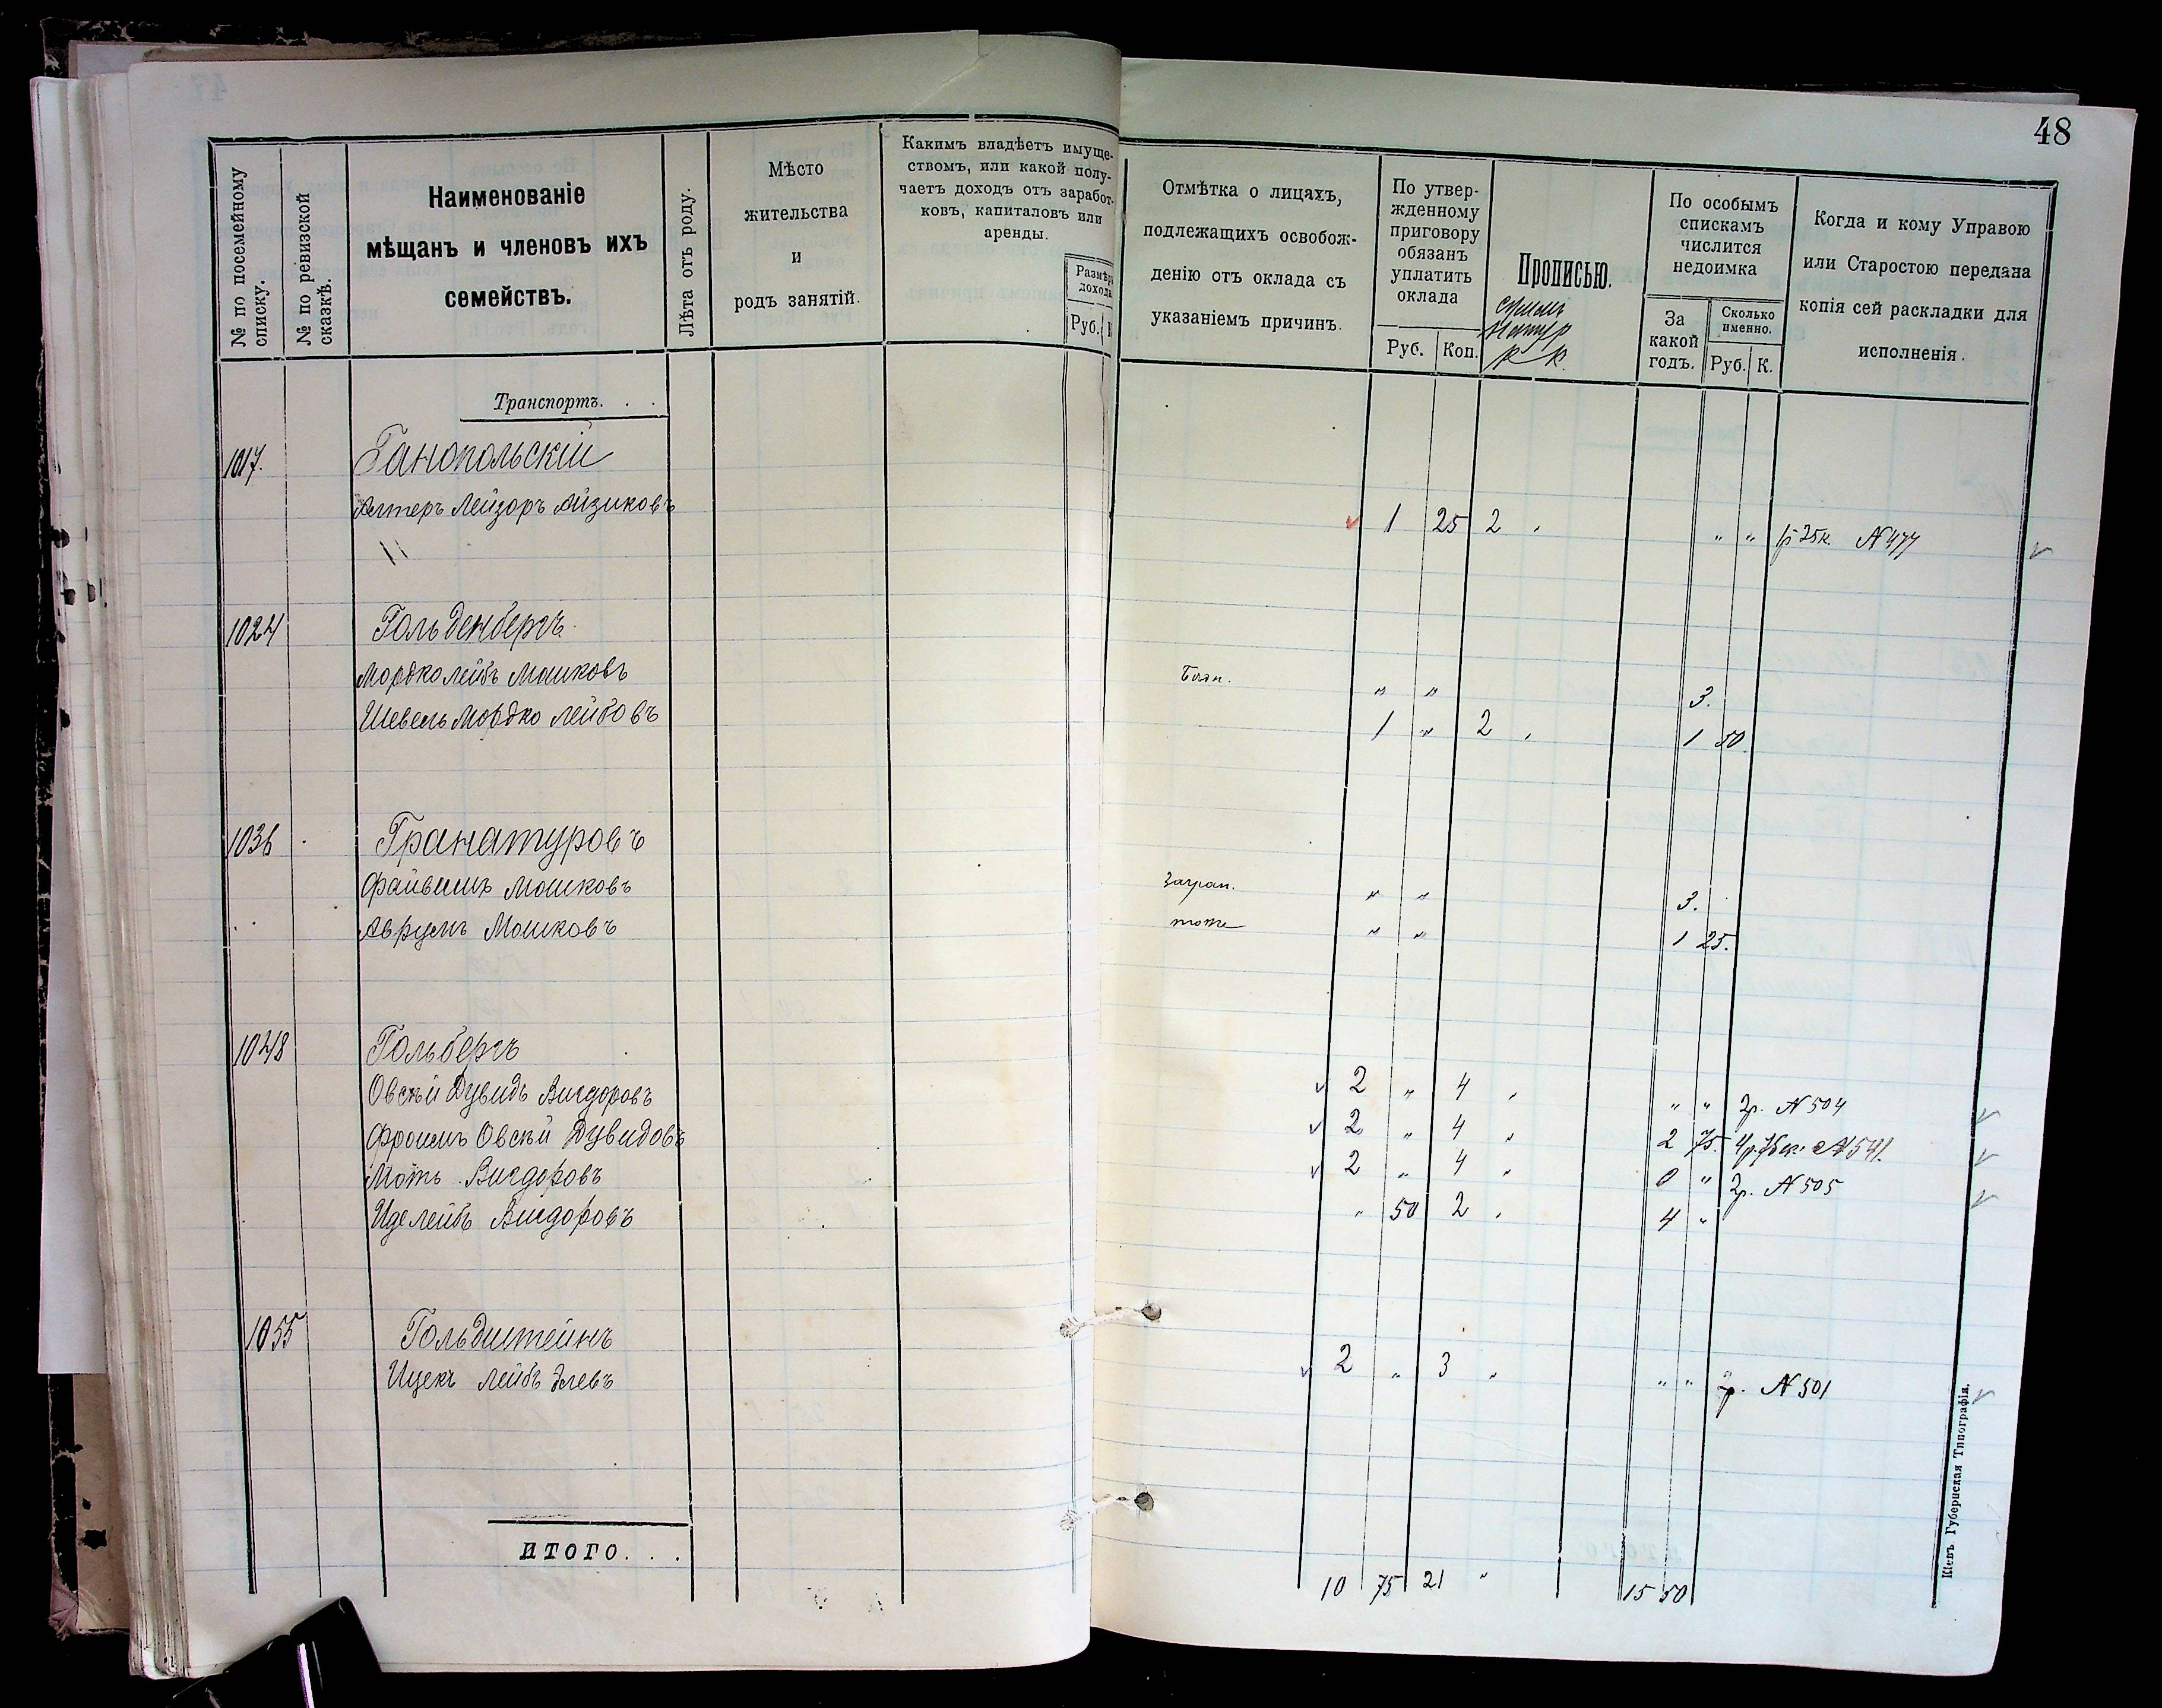 48
№ по посемейному списку.
№ по ревизской сказкѣ.
Наименованіе
мѣщанъ и членовъ ихъ
семействъ.
Лѣта отъ роду.
Мѣсто
жительства
и
родъ занятій.
Какимъ владѣетъ имуще-
ствомъ, или какой полу-
чаетъ доходъ отъ заработ-
ковъ, капиталовъ или
аренды.
Размѣръ
дохода
Руб.
Отмѣтка о лицахъ,
подлежащихъ освобож-
денію отъ оклада съ
указаніемъ причинъ.
По утвер-
жденному
приговору
обязанъ
уплатить
оклада
Руб. Коп.
Прописью.
По особымъ
спискамъ
числится
недоимка
За
какой
годъ.
Сколько
именно.
Руб. К.
Когда и кому Управою
или Старостою передана
копія сей раскладки для
исполненія.
Транспортъ. . .
1017. Ганопольскій
Алтеръ Лейзоръ Айзиковъ 1 25 2 , " " 1р 25к. N 477
1024 Гольденбергъ
Мордко Лейбъ Мошковъ " " 3.
Шевель Мордко Лейбовъ 1 " 2 , 1 50
1036 Гранатуровъ
Файвишъ Мошковъ Загран. " " 3.
Аврумъ Мошковъ тоже " " 1 25.
1048 Гольбергъ
Овсѣй Дувидъ Вигдоровъ 2 " 4 , " " 2р. N 504
Фроимъ Овсѣй Дувидовъ 2 " 4 " 2 75. 4р. 75к. N 541.
Моть Вигдоровъ 2 " 4 " 0 " 2р. N 505
Иделейбъ Вигдоровъ " 50 2 , 4 "
1055 Гольдштейнъ
Ицекъ Лейбъ Элевъ 2 " 3 " " " 2р. N 501
ИТОГО. . .
10 75 21 " 15 50
Кіевъ. Губернская Типографія.